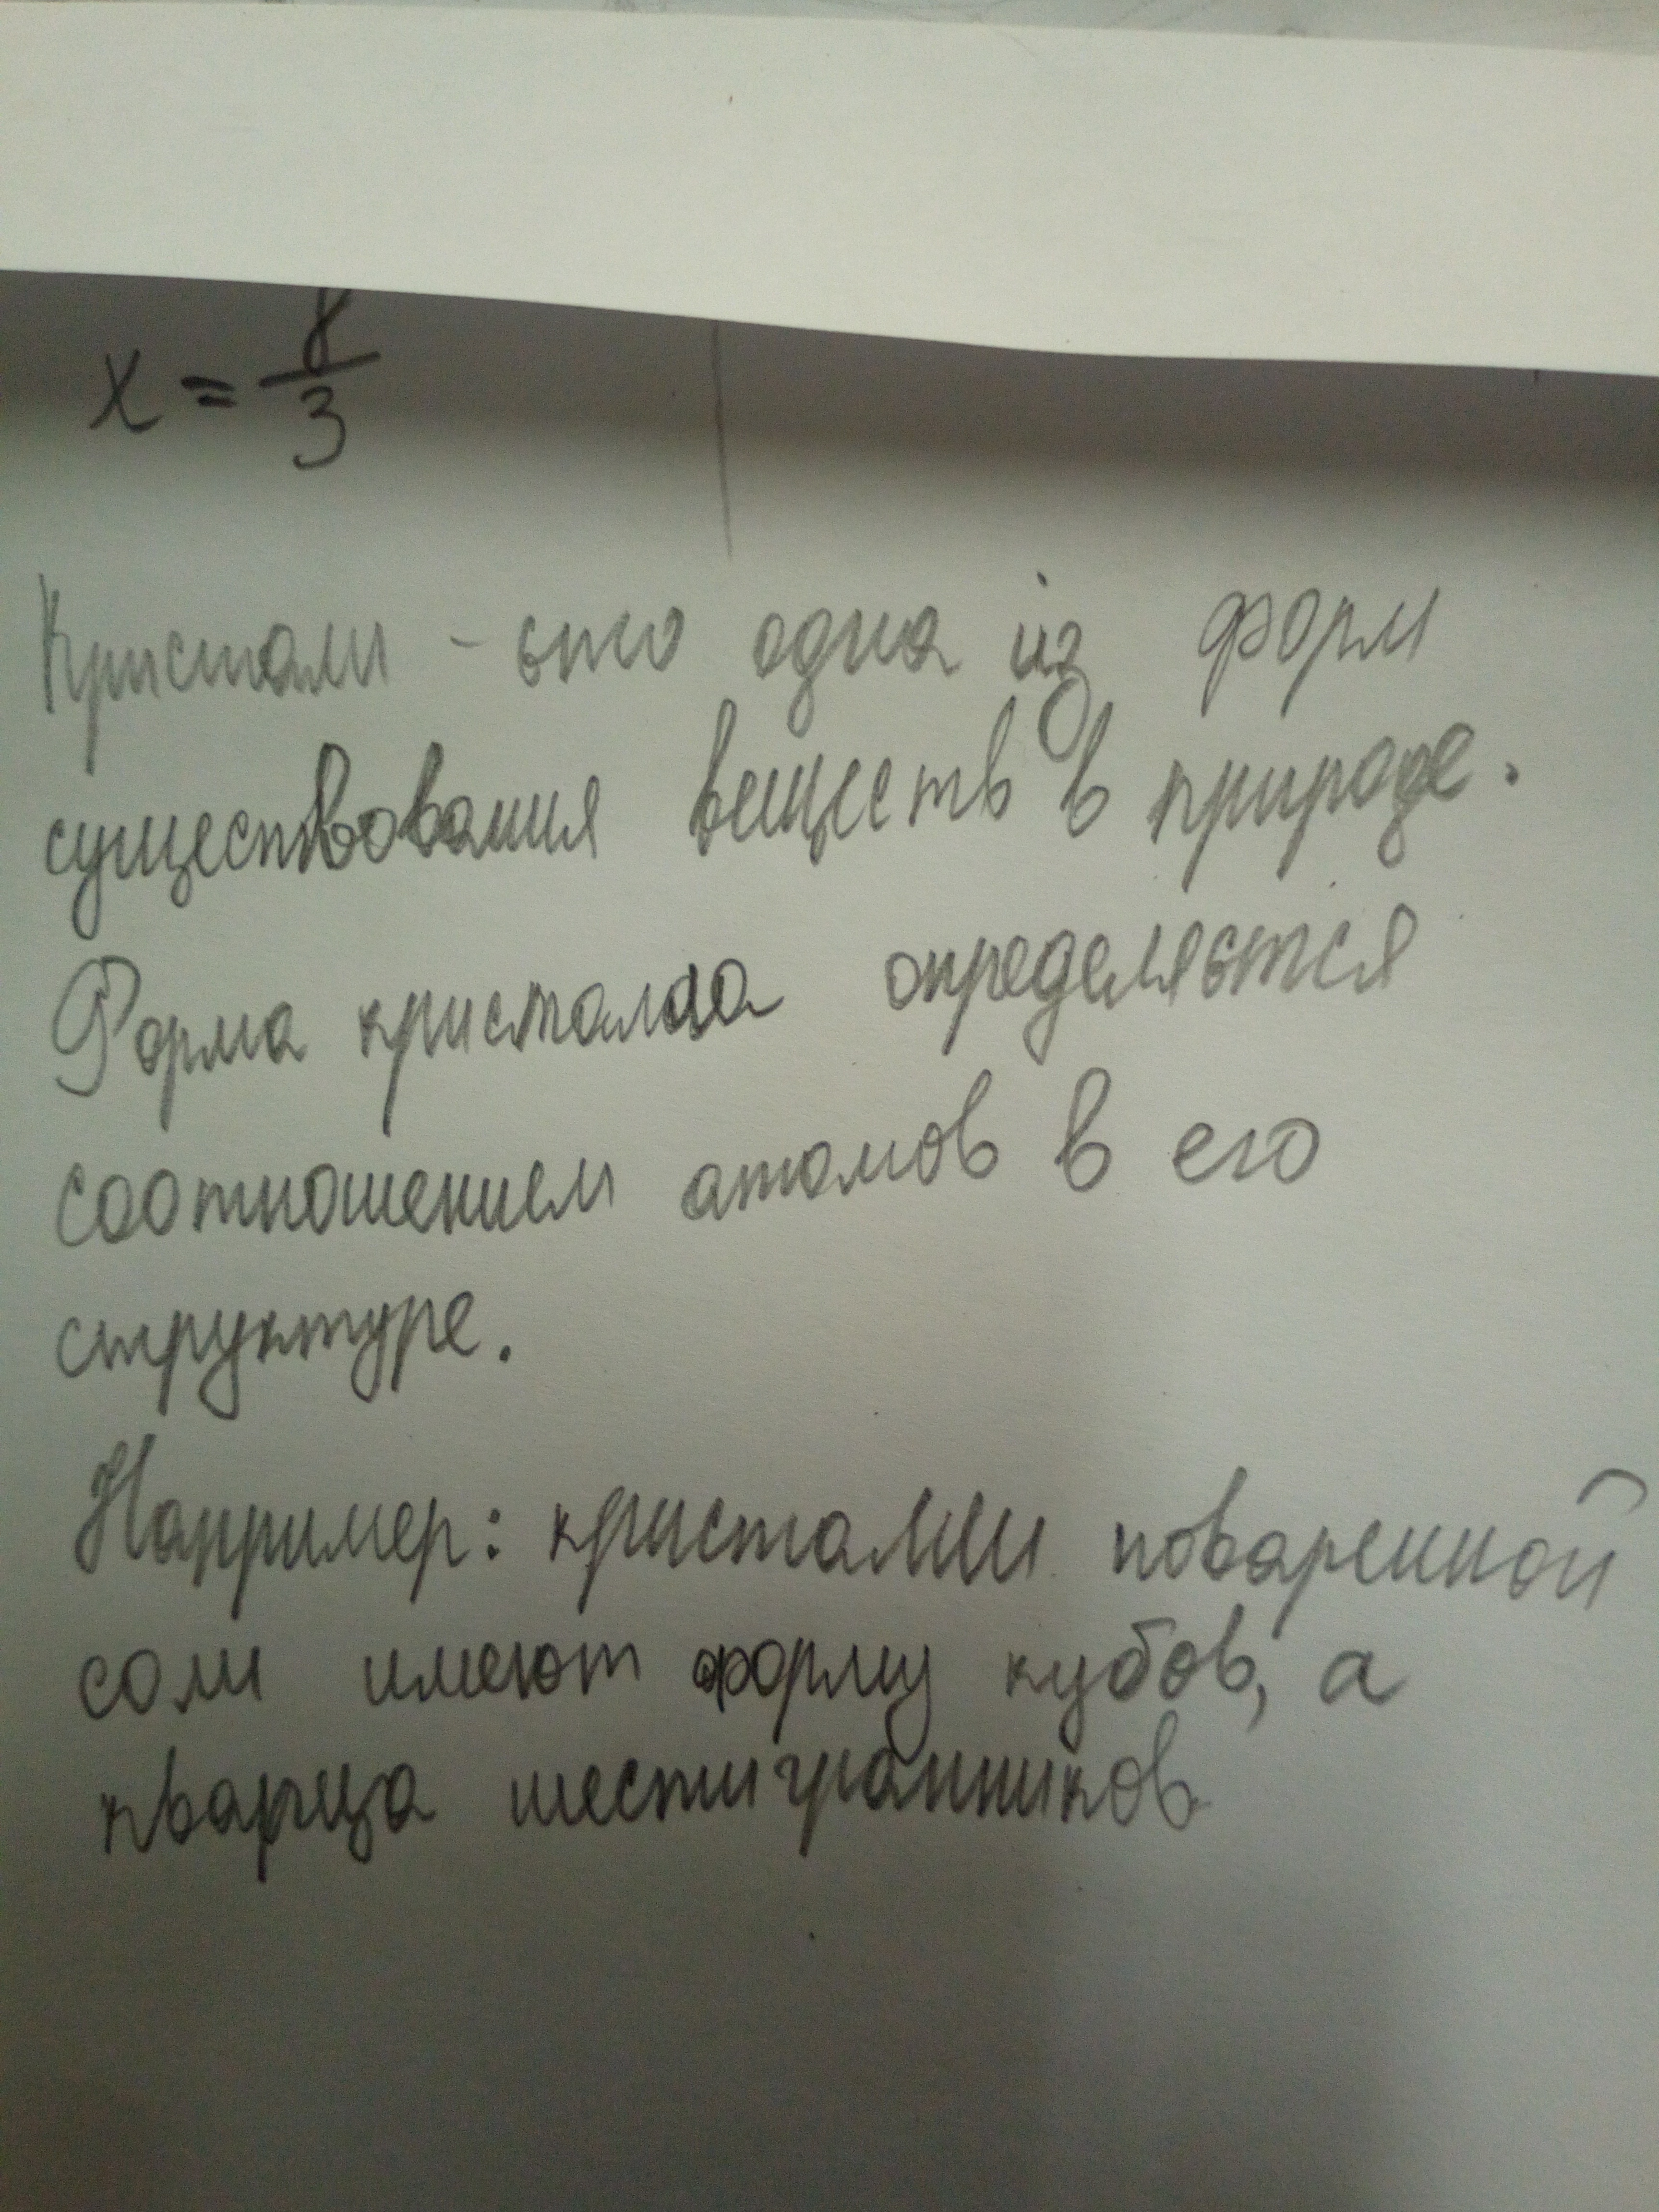 x = 8/3
Кристалл - это одна из форм
существования веществ в природе.
Форма кристалла определяется
соотношением атомов в его
структуре.
Например: кристаллы поваренной
соли имеют форму кубов, а
кварца шестигранников